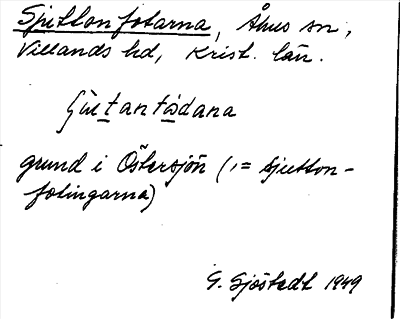 Sjuttonfotarna, Åhus sn,
Villands hd, Krist. län.
grund i Östersjön (,= sjutton-
fotingarna)
G. Sjöstedt 1949